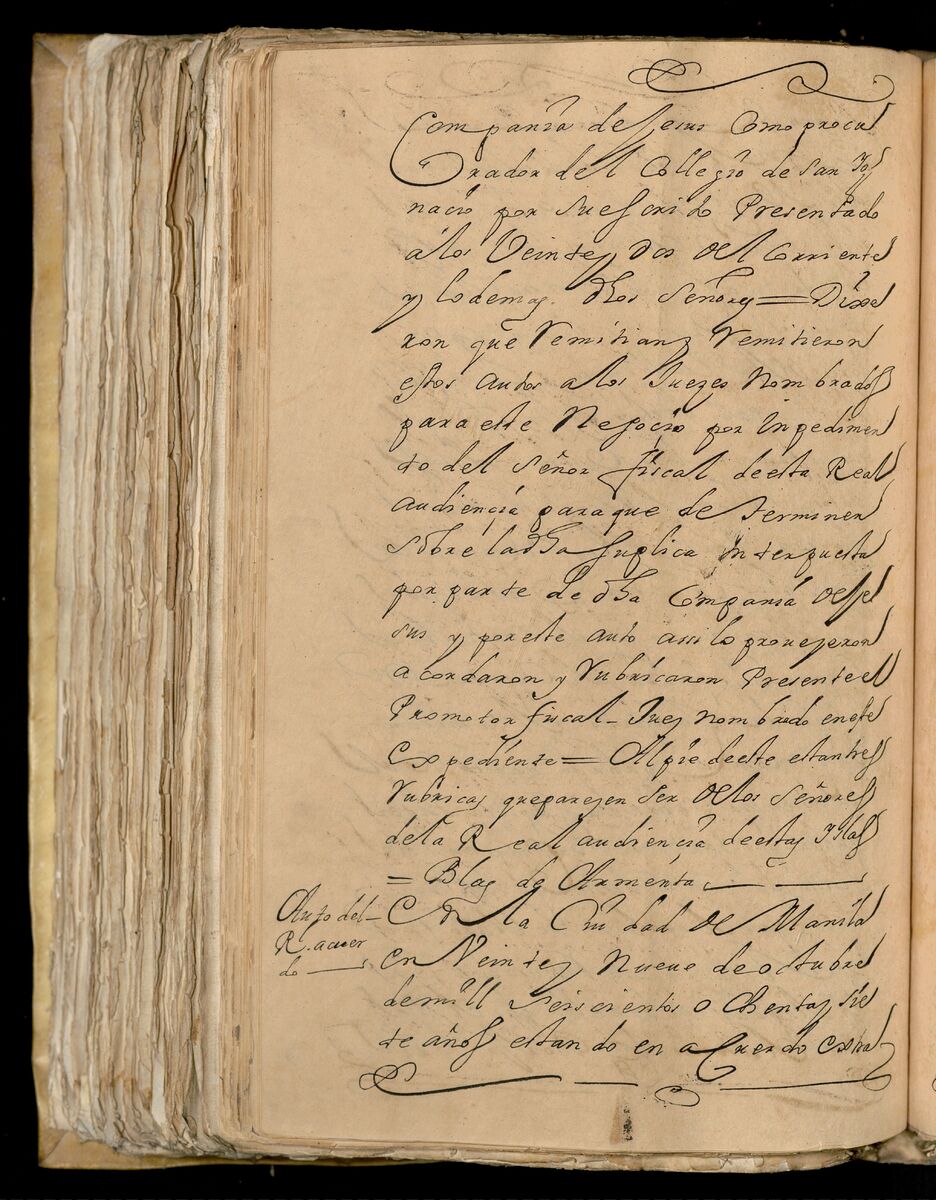 Compania de Jesus Como procu
rador del Collegio de San Yg
nacio por su escrito Presentado
a los Veinte y dos del Corriente
y lo demas. dhos Señores = Dixe
ron que Remitian y Remitieron
estos autos a los Juezes Nombrados
para este Negocio por Inpedimen
to del Señor fiscal de esta Real
audiencia para que determinen
sobre la dha suplica interpuesta
por parte de dha Compania de Je
sus y por este auto assi lo proueyeron
acordaron y Rubricaron Presente el
Promotor fiscal Juez nombrado en este
expediente = Al pie de este estan tres
Rubricas que parezen ser de los Señores
de la Real audiencia de estas Yslas
= Blas de Armenta
Auto del
R. acuer
do
En la Ciudad de Manila
en Veinte y Nueue de octubre
de mill Seiscientos ochenta y sie
te años estando en acuerdo extra